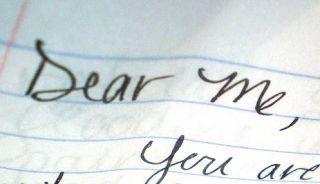 Dear Me,
You are